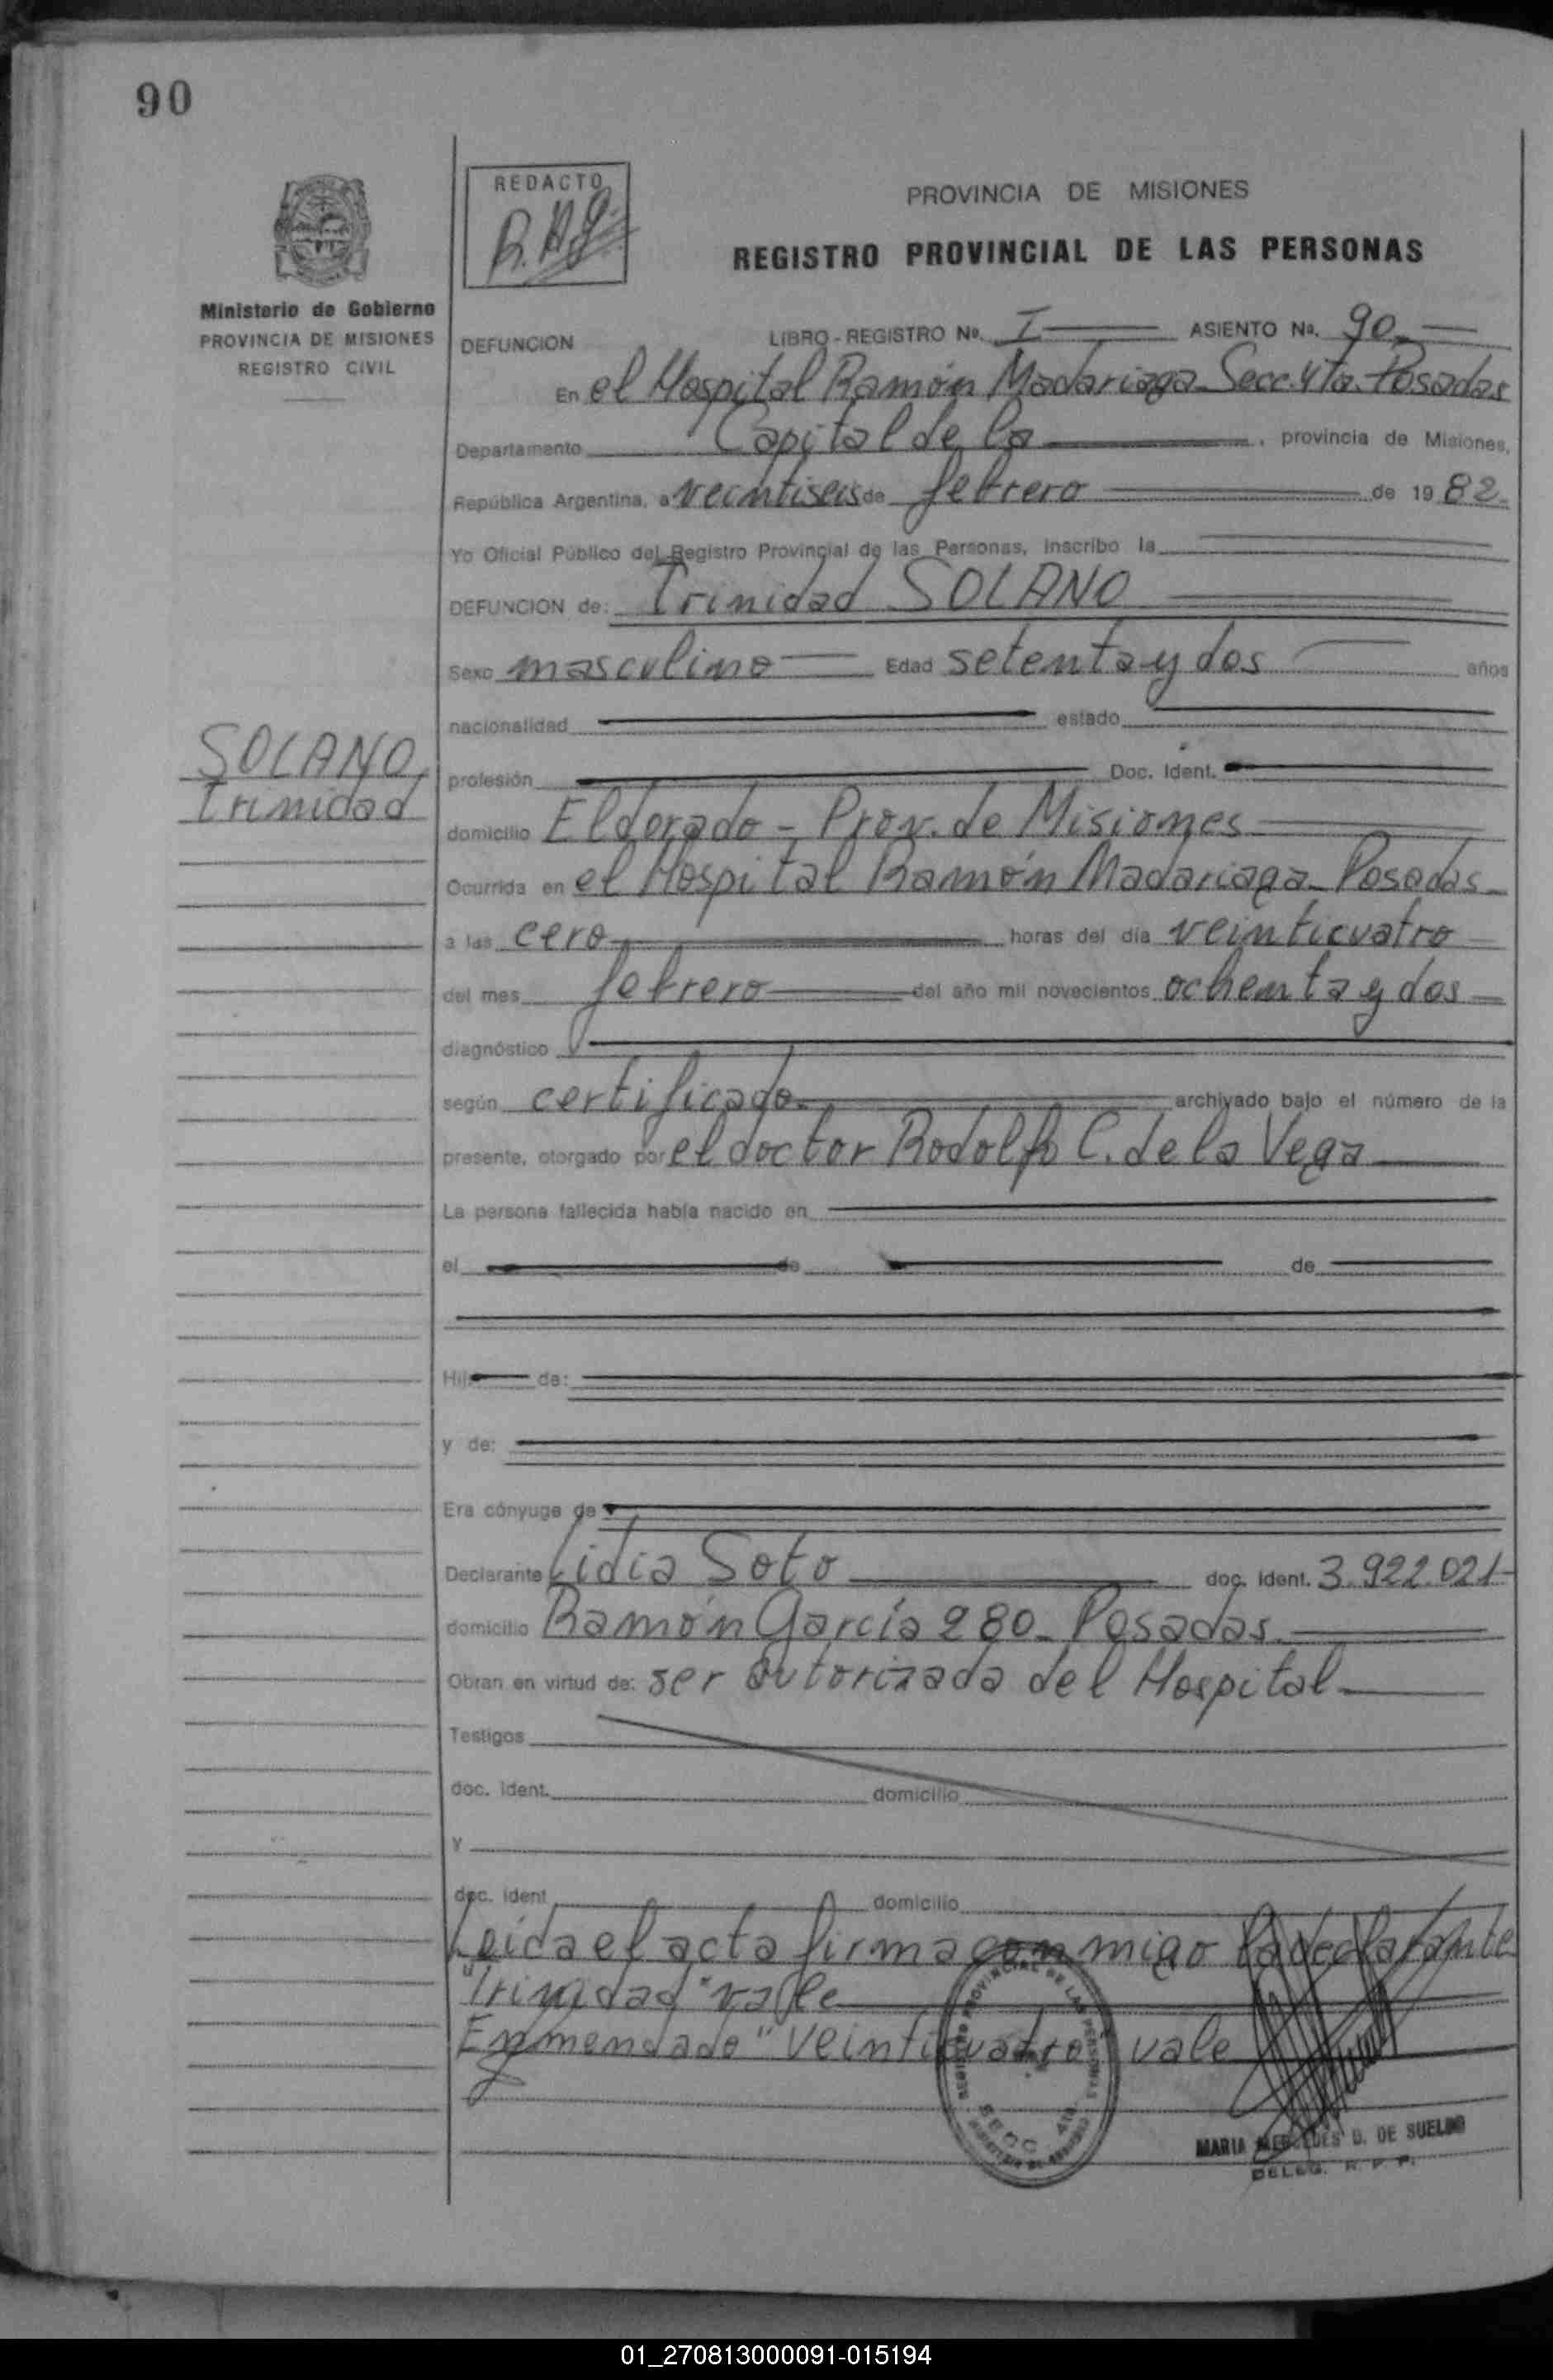 90
REDACTO
PROVINCIA DE MISIONES
REGISTRO PROVINCIAL DE LAS PERSONAS
Ministerio de Gobierno
PROVINCIA DE MISIONES
REGISTRO CIVIL
DEFUNCION LIBRO - REGISTRO No. I ASIENTO No. 90
En el Hospital Ramón Madariaga Secc. 4ta. Posadas
Departamento Capital de la , provincia de Misiones,
República Argentina, a veintiseis de febrero de 1982
Yo Oficial Público del Registro Provincial de las Personas, inscribo la
DEFUNCION de: Trinidad SOLANO
Sexo masculino Edad setenta y dos años
nacionalidad estado
SOLANO,
Trinidad
profesión Doc. Ident.
domicilio Eldorado - Prov. de Misiones
Ocurrida en el Hospital Ramón Madariaga - Posadas
a las cero horas del día veinticuatro
del mes febrero del año mil novecientos ochenta y dos
diagnóstico
según certificado archivado bajo el número de la
presente, otorgado por el doctor Rodolfo C. de la Vega
La persona fallecida había nacido en
el de de
Hij de:
y de:
Era cónyuge de
Declarante Lidia Soto doc. ident. 3.922.021
domicilio Ramón García 280 - Posadas
Obran en virtud de: ser autorizada del Hospital
Testigos
doc. ident. domicilio
y
doc. ident domicilio
Leída el acta firma conmigo la declarante
"Trinidad" valle
Enmendado "veinticuatro vale
REGISTRO PROVINCIAL DE LAS PERSONAS
SECC. 4ta
MARIA MERCEDES D. DE SUELDO
DELEG. R. P. P.
01_270813000091-015194